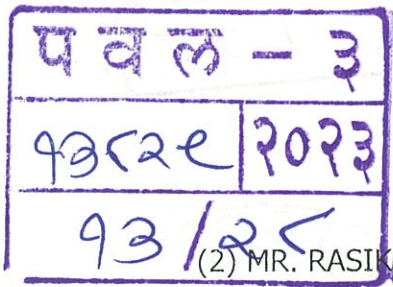 प व ल - ३
१३८२९ २०२३
१३/२८
(2) MR. RASIK